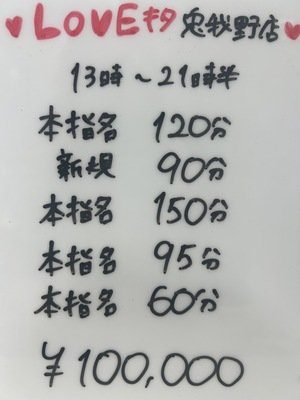 ♥LOVEキタ 兎我野店♥
13時～21時半
本指名 120分
新規 90分
本指名 150分
本指名 95分
本指名 60分
¥100,000